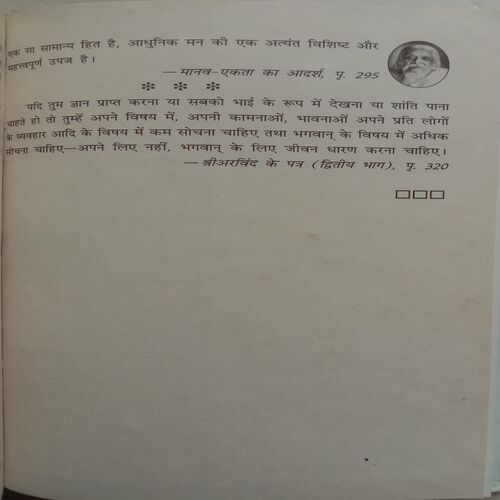 एक सा सामान्य हित है, आधुनिक मन की एक अत्यंत विशिष्ट और
महत्त्वपूर्ण उपज है।
—मानव-एकता का आदर्श, पृ. 295
* * *
यदि तुम ज्ञान प्राप्त करना या सबको भाई के रूप में देखना या शांति पाना
चाहते हो तो तुम्हें अपने विषय में, अपनी कामनाओं, भावनाओं अपने प्रति लोगों
के व्यवहार आदि के विषय में कम सोचना चाहिए तथा भगवान् के विषय में अधिक
सोचना चाहिए—अपने लिए नहीं, भगवान् के लिए जीवन धारण करना चाहिए।
—श्रीअरविंद के पत्र (द्वितीय भाग), पृ. 320
□□□